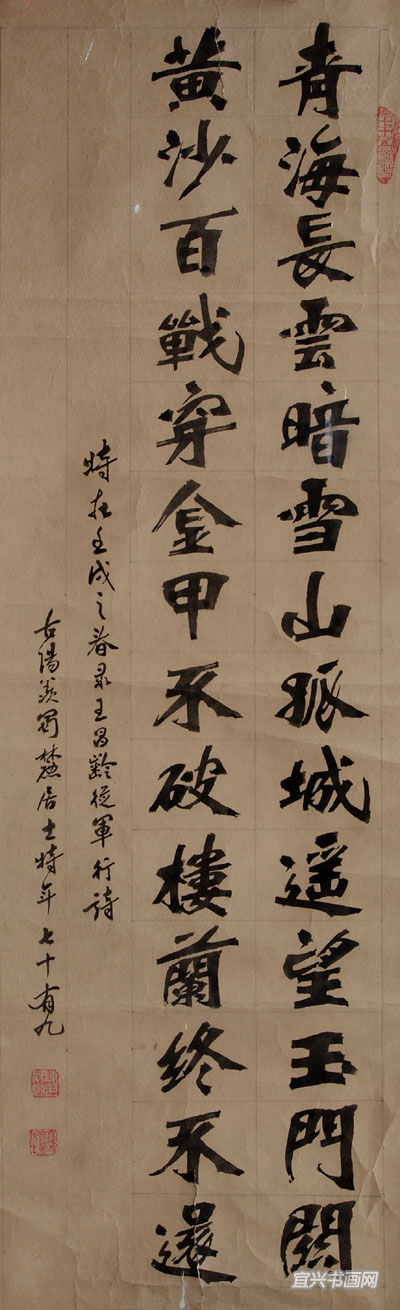 青海長雲暗雪山孤城遥望玉門關
黄沙百戰穿金甲不破樓蘭終不還
時在壬戌之春录王昌齡從軍行詩
古陽羡蜀麓居士時年七十有九
宜兴书画网